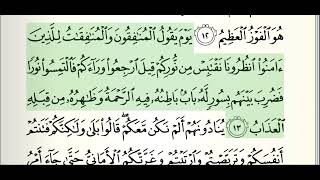 هُوَ ٱلْفَوْزُ ٱلْعَظِيمُ ١٢ يَوْمَ يَقُولُ ٱلْمُنَٰفِقُونَ وَٱلْمُنَٰفِقَٰتُ لِلَّذِينَ
ءَامَنُوا۟ ٱنظُرُونَا نَقْتَبِسْ مِن نُّورِكُمْ قِيلَ ٱرْجِعُوا۟ وَرَآءَكُمْ فَٱلْتَمِسُوا۟ نُورًا
فَضُرِبَ بَيْنَهُم بِسُورٍ لَّهُۥ بَابٌۢ بَاطِنُهُۥ فِيهِ ٱلرَّحْمَةُ وَظَٰهِرُهُۥ مِن قِبَلِهِ
ٱلْعَذَابُ ١٣ يُنَادُونَهُمْ أَلَمْ نَكُن مَّعَكُمْ ۖ قَالُوا۟ بَلَىٰ وَلَٰكِنَّكُمْ فَتَنتُمْ
أَنفُسَكُمْ وَتَرَبَّصْتُمْ وَٱرْتَبْتُمْ وَغَرَّتْكُمُ ٱلْأَمَانِىُّ حَتَّىٰ جَآءَ أَمْرُ